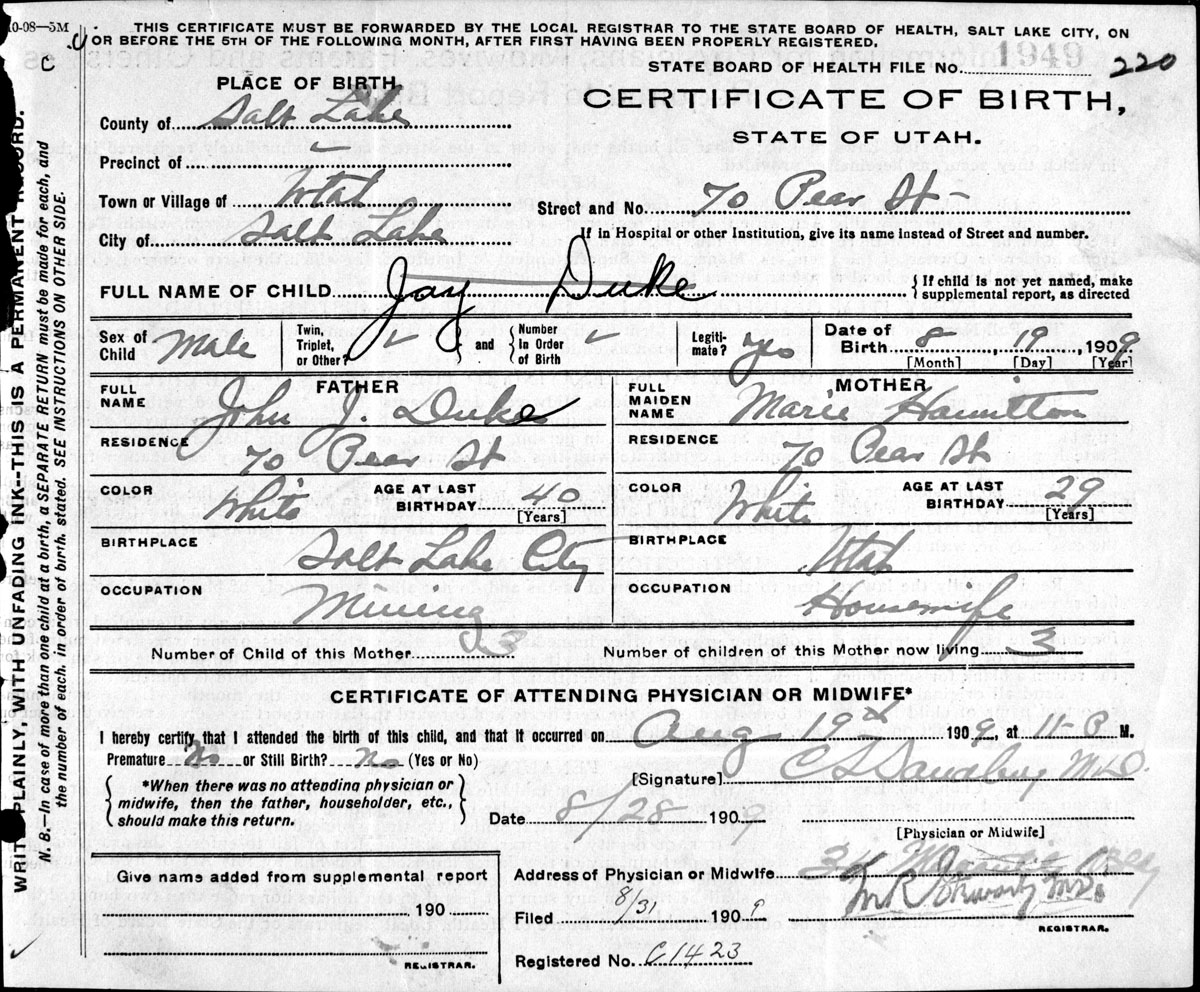 10-08—5M THIS CERTIFICATE MUST BE FORWARDED BY THE LOCAL REGISTRAR TO THE STATE BOARD OF HEALTH, SALT LAKE CITY, ON
OR BEFORE THE 5TH OF THE FOLLOWING MONTH, AFTER FIRST HAVING BEEN PROPERLY REGISTERED.
C
WRITE PLAINLY, WITH UNFADING INK--THIS IS A PERMANENT RECORD.
N. B.—In case of more than one child at a birth, a SEPARATE RETURN must be made for each, and
the number of each, in order of birth, stated. SEE INSTRUCTIONS ON OTHER SIDE.
STATE BOARD OF HEALTH FILE NO. 1949 220
PLACE OF BIRTH
CERTIFICATE OF BIRTH,
STATE OF UTAH.
County of Salt Lake
Precinct of
Town or Village of Utah
Street and No. 70 Pear St
City of Salt Lake
If in Hospital or other Institution, give its name instead of Street and number.
FULL NAME OF CHILD Jay Duke { If child is not yet named, make
supplemental report, as directed
Sex of Child Male Twin, Triplet, or Other? ✓ and Number In Order of Birth ✓ Legitimate? yes Date of Birth 8 19 1909
[Month] [Day] [Year]
FATHER MOTHER
FULL NAME John J. Duke FULL MAIDEN NAME Marie Hamilton
RESIDENCE 70 Pear St RESIDENCE 70 Pear St
COLOR White AGE AT LAST BIRTHDAY 40 [Years] COLOR White AGE AT LAST BIRTHDAY 29 [Years]
BIRTHPLACE Salt Lake City BIRTHPLACE Utah
OCCUPATION Mining OCCUPATION Housewife
Number of Child of this Mother 3 Number of children of this Mother now living 3
CERTIFICATE OF ATTENDING PHYSICIAN OR MIDWIFE*
I hereby certify that I attended the birth of this child, and that it occurred on Aug 19th 1909, at 11-P M.
Premature No or Still Birth? No (Yes or No)
[Signature] M.D.
{ *When there was no attending physician or
midwife, then the father, householder, etc.,
should make this return. }
Date 8/28 1909
[Physician or Midwife]
Give name added from supplemental report
Address of Physician or Midwife
190
Filed 8/31 1909 M.D.
REGISTRAR.
REGISTRAR.
Registered No. C1423